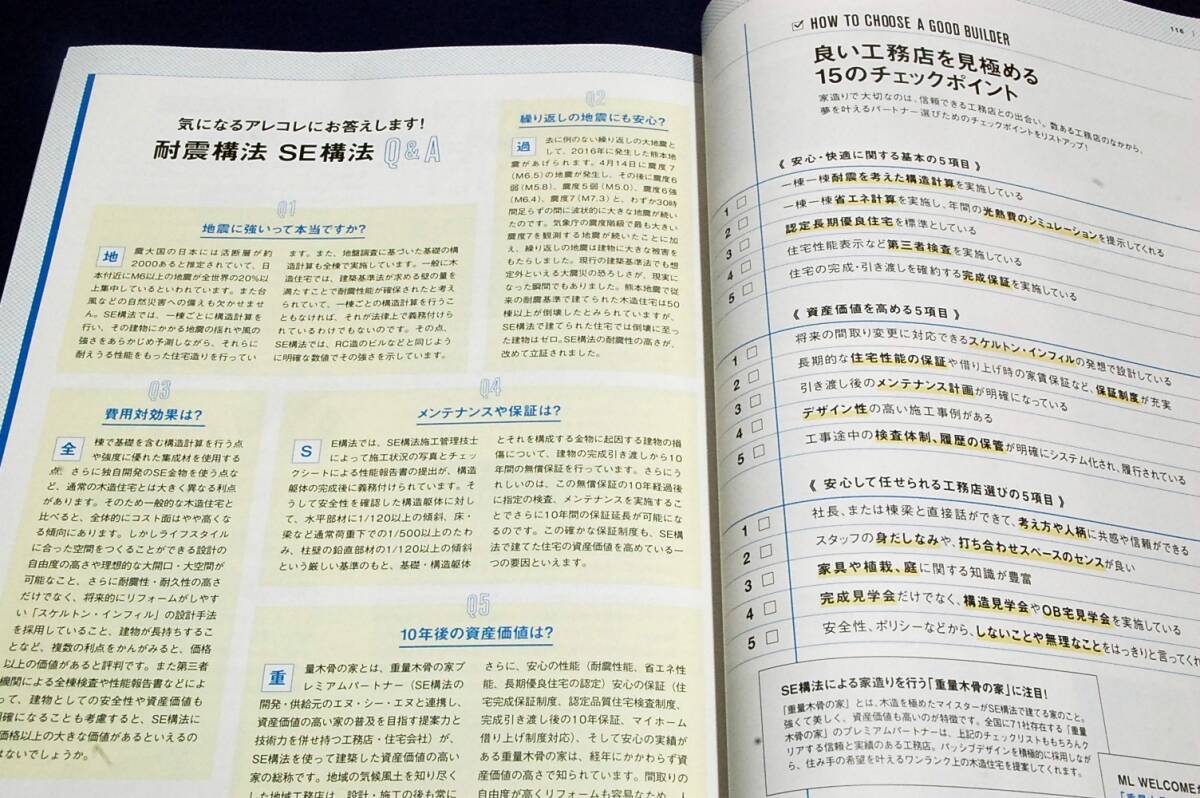 気になるアレコレにお答えします!
耐震構法 SE構法 Q&A
Q1
地震に強いって本当ですか?
地震大国の日本には活断層が約
2000あると推定されていて、日
本付近にM6以上の地震が全世界の20%以上
集中しているといわれています。また台
風などの自然災害への備えも欠かせませ
ん。SE構法では、一棟ごとに構造計算を行
い、その建物にかかる地震の揺れや風の
強さをあらかじめ予測しながら、それらに
耐えうる性能をもった住宅造りを行ってい
ます。また、地盤調査に基づいた基礎の構
造計算も全棟で実施しています。一般に木
造住宅では、建築基準法が求める壁の量を
満たすことで耐震性能が確保されたと考え
られていて、一棟ごとの構造計算を行うこ
ともなければ、それが法律上で義務付けら
れているわけでもないのです。その点、
SE構法では、RC造のビルなどと同じよう
に明確な数値でその強さを示しています。
Q2
繰り返しの地震にも安心?
過去に例のない繰り返しの大地震と
して、2016年に発生した熊本地
震があげられます。4月14日に震度7
(M6.5)の地震が発生し、その後に震度6
弱(M5.8)、震度5弱(M5.0)、震度6強
(M6.4)、震度7(M7.3)と、わずか30時
間足らずの間に波状的に大きな地震が続い
たのです。気象庁の震度階級で最も大きい
震度7を観測する地震が続いたことに加
え、繰り返しの地震は建物に大きな被害を
もたらしました。現行の建築基準法でも想
定外といえる大震災の恐ろしさが、現実に
なった瞬間でもありました。熊本地震で従
来の耐震基準で建てられた木造住宅は50
棟以上が倒壊したとみられていますが、
SE構法で建てられた住宅では倒壊に至っ
た建物はゼロ。SE構法の耐震性の高さが、
改めて立証されました。
Q3
費用対効果は?
全棟で基礎を含む構造計算を行う点
や強度に優れた集成材を使用する
点、さらに独自開発のSE金物を使う点な
ど、通常の木造住宅とは大きく異なる利点
があります。そのため一般的な木造住宅と
比べると、全体的にコスト面はやや高くな
る傾向にあります。しかしライフスタイル
に合った空間をつくることができる設計の
自由度の高さや理想的な大開口・大空間が
可能なこと、さらに耐震性・耐久性の高さ
だけでなく、将来的にリフォームがしやす
い「スケルトン・インフィル」の設計手法
を採用していること、建物が長持ちするこ
となど、複数の利点をかんがみると、価格
以上の価値があると評判です。また第三者
機関による全棟検査や性能報告書などによ
って、建物としての安全性や資産価値も
明確になることも考慮すると、SE構法に
価格以上の大きな価値があるといえるの
はないでしょうか。
Q4
メンテナンスや保証は?
SE構法では、SE構法施工管理技士
によって施工状況の写真とチェッ
クシートによる性能報告書の提出が、構造
躯体の完成後に義務付けられています。そ
うして安全性を確認した構造躯体に対し
て、水平部材に1/120以上の傾斜、床・
梁など通常荷重下での1/500以上のたわ
み、柱壁の鉛直部材の1/120以上の傾斜
という厳しい基準のもと、基礎・構造躯体
とそれを構成する金物に起因する建物の損
傷について、建物の完成引き渡しから10
年間の無償保証を行っています。さらにう
れしいのは、この無償保証の10年経過後
に指定の検査、メンテナンスを実施するこ
とでさらに10年間の保証延長が可能にな
るのです。この確かな保証制度も、SE構
法で建てた住宅の資産価値を高めている一
つの要因といえます。
Q5
10年後の資産価値は?
重量木骨の家とは、重量木骨の家プ
レミアムパートナー(SE構法の
開発・供給元のエヌ・シー・エヌと連携し、
資産価値の高い家の普及を目指す提案力と
技術力を併せ持つ工務店・住宅会社)が、
SE構法を使って建築した資産価値の高い
家の総称です。地域の気候風土を知り尽く
した地域工務店は、設計・施工の後も常に
さらに、安心の性能(耐震性能、省エネ性
能、長期優良住宅の認定)安心の保証(住
宅完成保証制度、認定品質住宅検査制度、
完成引き渡し後の10年保証、マイホーム
借り上げ制度対応)、そして安心の実績が
ある重量木骨の家は、経年にかかわらず資
産価値の高さで知られています。間取りの
自由度が高くリフォームも容易なため、人
116
HOW TO CHOOSE A GOOD BUILDER
良い工務店を見極める
15のチェックポイント
家造りで大切なのは、信頼できる工務店との出合い。数ある工務店のなかから、
夢を叶えるパートナー選びためのチェックポイントをリストアップ!
《 安心・快適に関する基本の5項目 》
1 □ 一棟一棟耐震を考えた構造計算を実施している
2 □ 一棟一棟省エネ計算を実施し、年間の光熱費のシミュレーションを提示してくれる
3 □ 認定長期優良住宅を標準としている
4 □ 住宅性能表示など第三者検査を実施している
5 □ 住宅の完成・引き渡しを確約する完成保証を実施している
《 資産価値を高める5項目 》
1 □ 将来の間取り変更に対応できるスケルトン・インフィルの発想で設計している
2 □ 長期的な住宅性能の保証や借り上げ時の家賃保証など、保証制度が充実
3 □ 引き渡し後のメンテナンス計画が明確になっている
4 □ デザイン性の高い施工事例がある
5 □ 工事途中の検査体制、履歴の保管が明確にシステム化され、履行されている
《 安心して任せられる工務店選びの5項目 》
1 □ 社長、または棟梁と直接話ができて、考え方や人柄に共感や信頼ができる
2 □ スタッフの身だしなみや、打ち合わせスペースのセンスが良い
3 □ 家具や植栽、庭に関する知識が豊富
4 □ 完成見学会だけでなく、構造見学会やOB宅見学会を実施している
5 □ 安全性、ポリシーなどから、しないことや無理なことをはっきりと言ってくれ
SE構法による家造りを行う「重量木骨の家」に注目!
「重量木骨の家」とは、木造を極めたマイスターがSE構法で建てる家のこと。
強くて美しく、資産価値も高いのが特徴です。全国に71社存在する「重量
木骨の家」のプレミアムパートナーは、上記のチェックリストももちろんク
リアする信頼と実績のある工務店。パッシブデザインを積極的に採用しなが
ら、住み手の希望を叶えるワンランク上の木造住宅を提案してくれます。
ML WELCOME
「重量